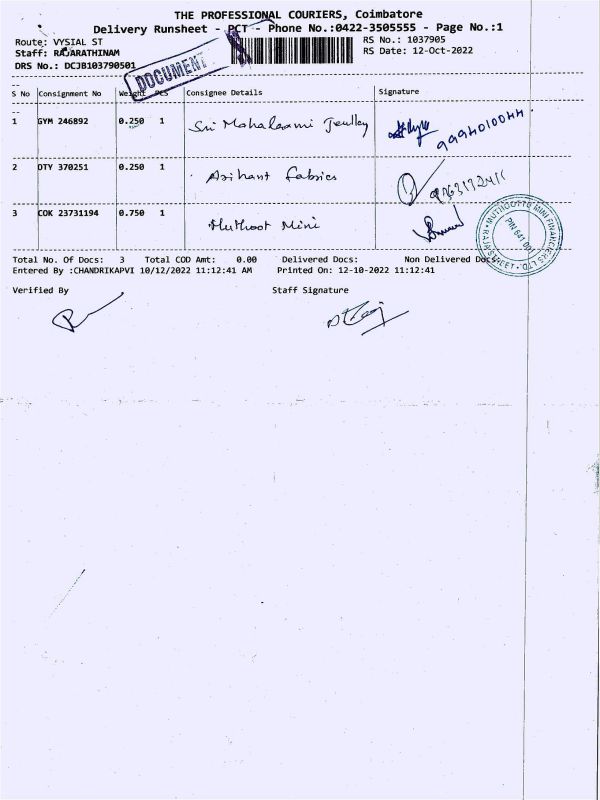 THE PROFESSIONAL COURIERS, Coimbatore
Delivery Runsheet - PCT - Phone No.:0422-3505555 - Page No.:1
Route: VYSIAL ST
RS No.: 1037905
Staff: RAJARATHINAM
RS Date: 12-Oct-2022
DRS No.: DCJB103790501
DOCUMENT
S No Consignment No Weight Pcs Consignee Details Signature
1 GYM 246892 0.250 1 Sri Mahalaxmi Jewlley 9994010044
2 OTY 370251 0.250 1 Arihant fabrics
3 COK 23731194 0.750 1 Muthoot Mini
MUTHOOTTU MINI FINANCIERS LTD.
PIN 641 001
RAJA STREET
Total No. Of Docs: 3 Total COD Amt: 0.00 Delivered Docs: Non Delivered Docs:
Entered By :CHANDRIKAPVI 10/12/2022 11:12:41 AM Printed On: 12-10-2022 11:12:41
Verified By Staff Signature